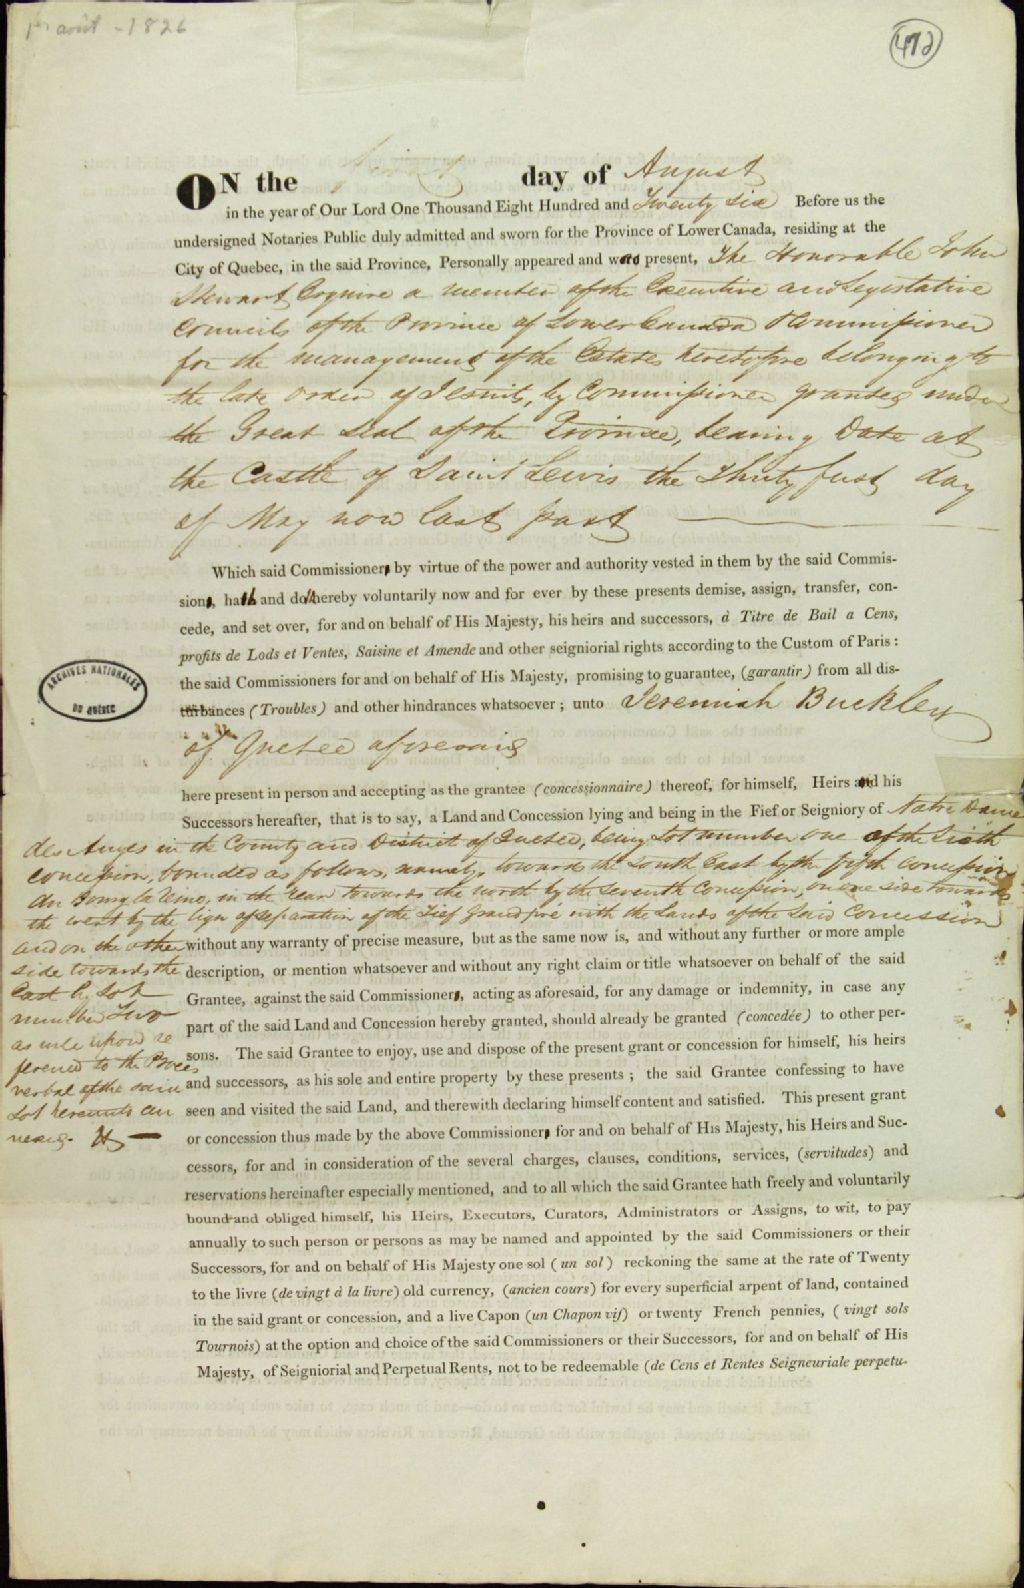 1er août - 1826
472
ON the first day of August
in the year of Our Lord One Thousand Eight Hundred and Twenty six Before us the
undersigned Notaries Public duly admitted and sworn for the Province of Lower Canada, residing at the
City of Quebec, in the said Province, Personally appeared and was present, The Honorable John
Stewart Esquire a member of the Executive and Legislative
Councils of the Province of Lower Canada Commissioner
for the management of the Estates heretofore belonging to
the late order of Jesuits, by Commission granted under
the Great Seal of the Province, bearing Date at
the Castle of Saint Lewis the Thirty first day
of May now last past
Which said Commissioner by virtue of the power and authority vested in them by the said Commis-
sion, hath and doth hereby voluntarily now and for ever by these presents demise, assign, transfer, con-
cede, and set over, for and on behalf of His Majesty, his heirs and successors, à Titre de Bail a Cens,
profits de Lods et Ventes, Saisine et Amende and other seigniorial rights according to the Custom of Paris :
the said Commissioners for and on behalf of His Majesty, promising to guarantee, (garantir) from all dis-
turbances (Troubles) and other hindrances whatsoever ; unto Jeremiah Buckley
ARCHIVES NATIONALES
DU QUÉBEC
of Quebec aforesaid
here present in person and accepting as the grantee (concessionnaire) thereof, for himself, Heirs and his
Successors hereafter, that is to say, a Land and Concession lying and being in the Fief or Seigniory of Notre Dame
des Anges in the County and District of Quebec, being Lot number one of the Sixth
concession, bounded as follows, namely, towards the South East by the fifth concession
in the rear towards the north by the Seventh Concession, on one side towards
the west by the lign of separation of the Fief Grand pré with the Lands of the Said Concession
and on the other
side towards the
East by Lot
number Two
as
ferred to the Proces
verbal of the said
Lot hereunto an
nexed.
without any warranty of precise measure, but as the same now is, and without any further or more ample
description, or mention whatsoever and without any right claim or title whatsoever on behalf of the said
Grantee, against the said Commissioner, acting as aforesaid, for any damage or indemnity, in case any
part of the said Land and Concession hereby granted, should already be granted (concedée) to other per-
sons. The said Grantee to enjoy, use and dispose of the present grant or concession for himself, his heirs
and successors, as his sole and entire property by these presents ; the said Grantee confessing to have
seen and visited the said Land, and therewith declaring himself content and satisfied. This present grant
or concession thus made by the above Commissioner, for and on behalf of His Majesty, his Heirs and Suc-
cessors, for and in consideration of the several charges, clauses, conditions, services, (servitudes) and
reservations hereinafter especially mentioned, and to all which the said Grantee hath freely and voluntarily
bound and obliged himself, his Heirs, Executors, Curators, Administrators or Assigns, to wit, to pay
annually to such person or persons as may be named and appointed by the said Commissioners or their
Successors, for and on behalf of His Majesty one sol (un sol) reckoning the same at the rate of Twenty
to the livre (de vingt à la livre) old currency, (ancien cours) for every superficial arpent of land, contained
in the said grant or concession, and a live Capon (un Chapon vif) or twenty French pennies, (vingt sols
Tournois) at the option and choice of the said Commissioners or their Successors, for and on behalf of His
Majesty, of Seigniorial and Perpetual Rents, not to be redeemable (de Cens et Rentes Seigneuriale perpetu-